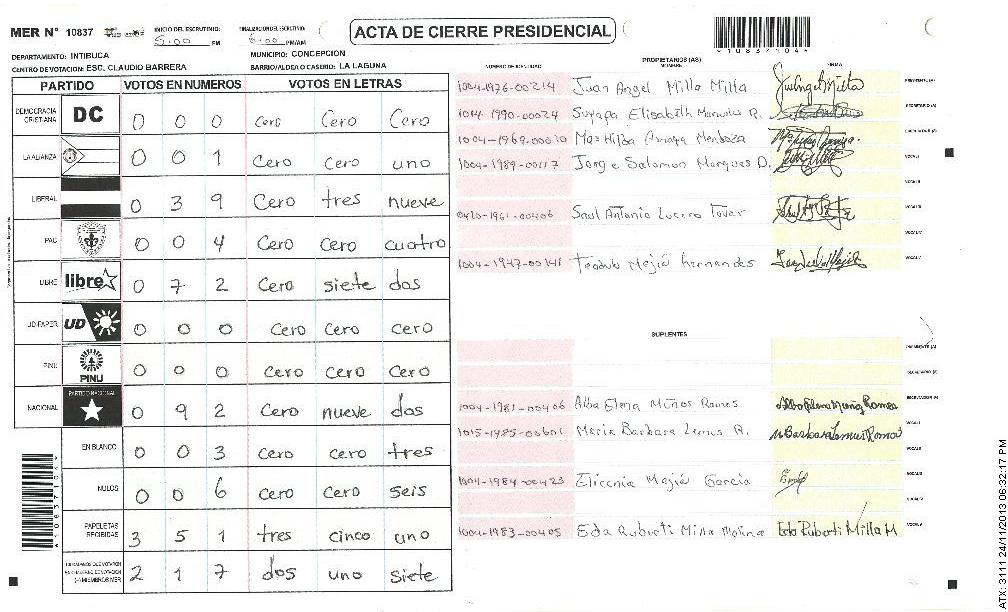 MER N° 10837 INICIO DEL ESCRUTINIO: 5:00 PM FINALIZACION DEL ESCRUTINIO: 6:00 PM/AM
ACTA DE CIERRE PRESIDENCIAL
DEPARTAMENTO: INTIBUCA MUNICIPIO: CONCEPCION
CENTRO DE VOTACION: ESC. CLAUDIO BARRERA BARRIO/ALDEA O CASERIO: LA LAGUNA
PARTIDO VOTOS EN NUMEROS VOTOS EN LETRAS
DEMOCRACIA CRISTIANA DC 0 0 0 Cero Cero Cero
LA ALIANZA 0 0 1 Cero cero uno
LIBERAL 0 3 9 Cero tres nueve
PAC 0 0 4 Cero Cero cuatro
LIBRE libre 0 7 2 Cero siete dos
UD-FAPER UD 0 0 0 Cero Cero cero
PINU PINU 0 0 0 Cero Cero Cero
NACIONAL PARTIDO NACIONAL 0 9 2 Cero nueve dos
EN BLANCO 0 0 3 cero cero tres
NULOS 0 0 6 cero Cero seis
PAPELETAS RECIBIDAS 3 5 1 tres cinco uno
2 1 7 dos uno siete
PROPIETARIOS (AS)
NUMERO DE IDENTIDAD NOMBRE FIRMA
1004-1976-00214 Juan Angel Milla Milla PRESIDENTE (A)
1014-1990-00024 Suyapa Elisabeth R. SECRETARIO (A)
1004-1969-00020 Hilda Amaya Mendoza
1004-1989-00117 Jorge Salomon Marques D. VOCAL I
VOCAL II
0420-1961-00406 Saul Antonio Lucero Tovar VOCAL III
VOCAL IV
1004-1947-00141 Teodulo Mejia hernandes VOCAL V
SUPLENTES
PRESIDENTE (A)
SECRETARIO (A)
1004-1981-00406 Alba Elena Muños Rames
1015-1985-00601 Maria Barbara Lemus R. VOCAL I
VOCAL II
1004-1984-00423 Elicenia Mejia Garcia VOCAL III
VOCAL IV
1004-1983-00405 Eda Ruberti Milla Molina Eda Ruberti Milla M VOCAL V
ATX: 3111 24/11/2013 06:32:17 PM